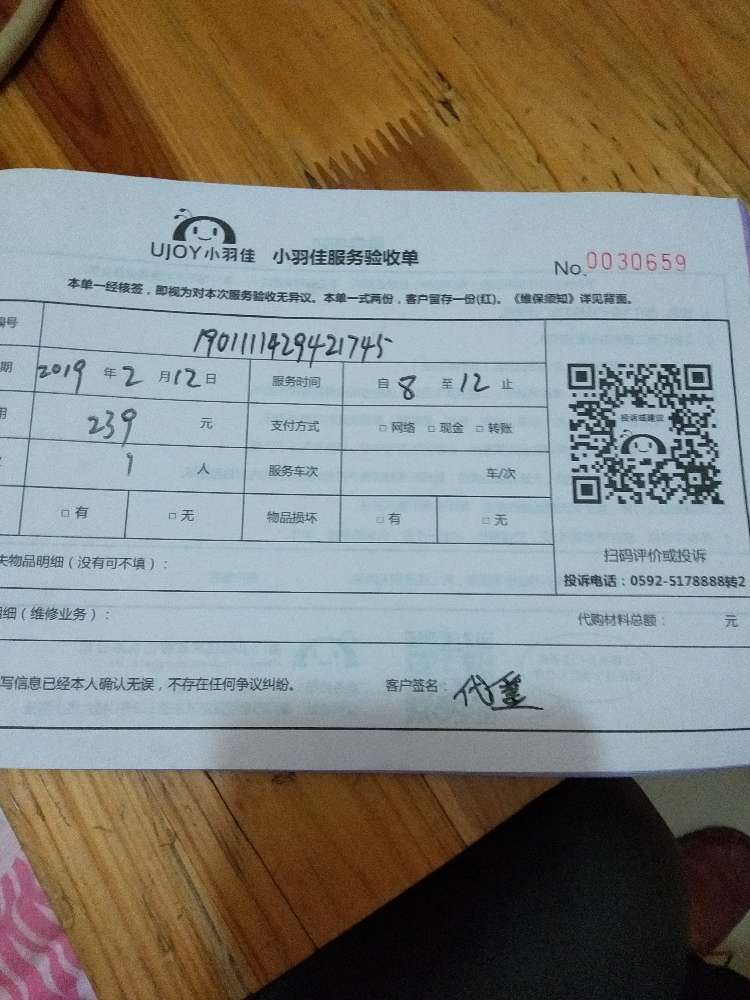 UJOY小羽佳 小羽佳服务验收单 No.0030659
本单一经核签，即视为对本次服务验收无异议。本单一式两份，客户留存一份(红)。《维保须知》详见背面。
编号 1901111429421745
期 2019 年 2 月 12 日 服务时间 自 8 至 12 止
用 239 元 支付方式 □ 网络 □ 现金 □ 转账
1 人 服务车次 车/次
□ 有 □ 无 物品损坏 □ 有 □ 无
投诉或建议
扫码评价或投诉
投诉电话：0592-5178888转2
失物品明细（没有可不填）：
明细（维修业务）： 代购材料总额： 元
写信息已经本人确认无误，不存在任何争议纠纷。 客户签名：